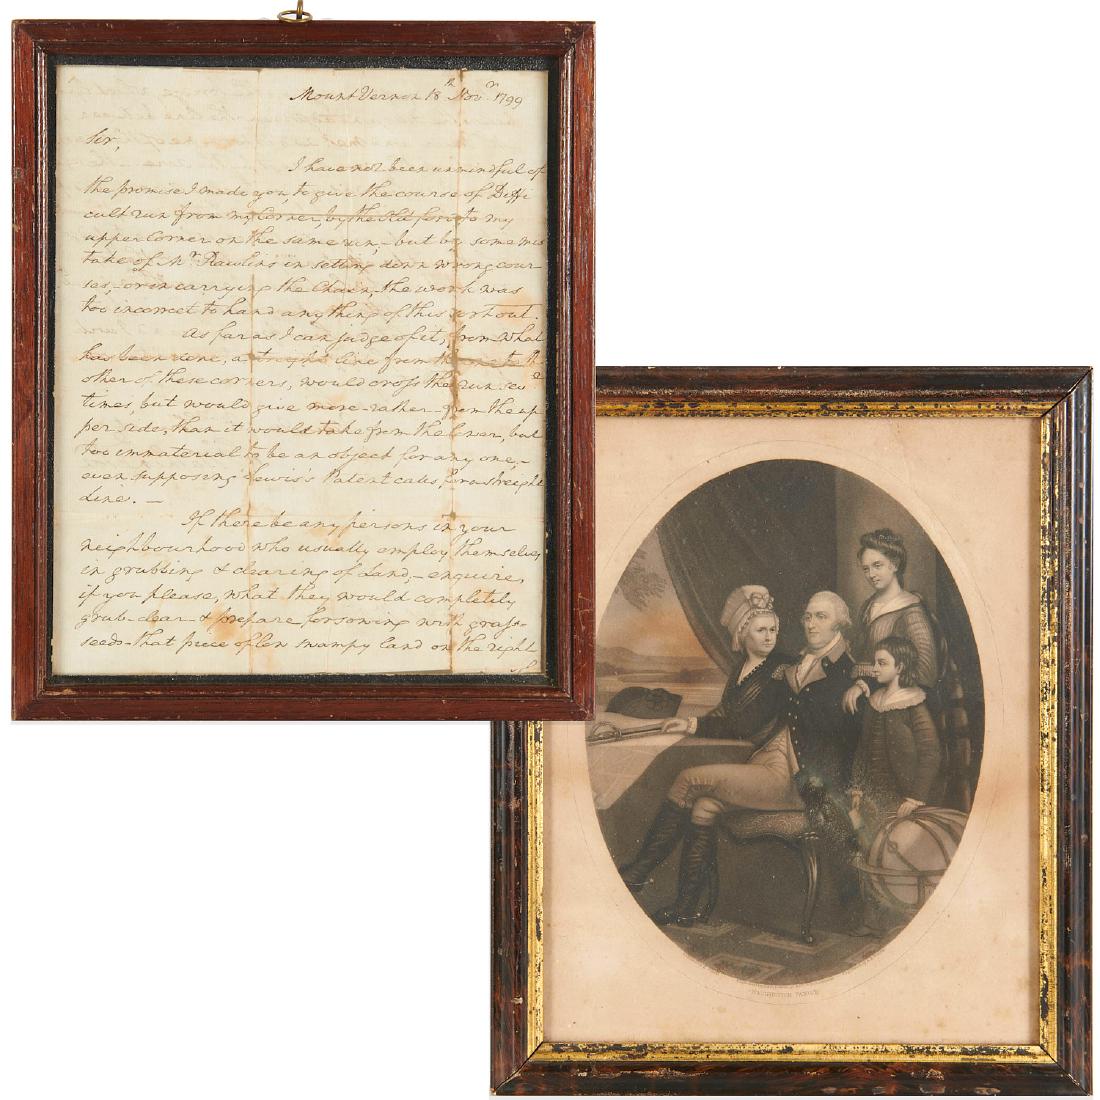 Mount Vernon 18th Novr. 1799
Sir,
I have not been unmindful of
the promise I made you, to give the course of Diffi
cult run from my Corner, by the Old ford to my
upper corner on the same run; - but by some mis
take of Mr. Rawlins in setting down wrong cour
ses, - or in carrying the Chain, the work was
too incorrect to hand any thing of this sort out.
As far as I can judge of it, from what
has been done, a streight line from the one to the
other of these corners, would cross the run sevl.
times, but would give more rather from the up
per side, than it would take from the lower, but
too immaterial to be an object for any one, -
even supposing Lewis's Patent calls for a streight
line. -
If there be any persons in your
neighbourhood who usually employ themselves
in grubbing & clearing of Land, - enquire,
if you please, what they would completely
grub - clear - & prepare for sowing with grass-
seeds - that piece of swampy land on the right
WASHINGTON FAMILY